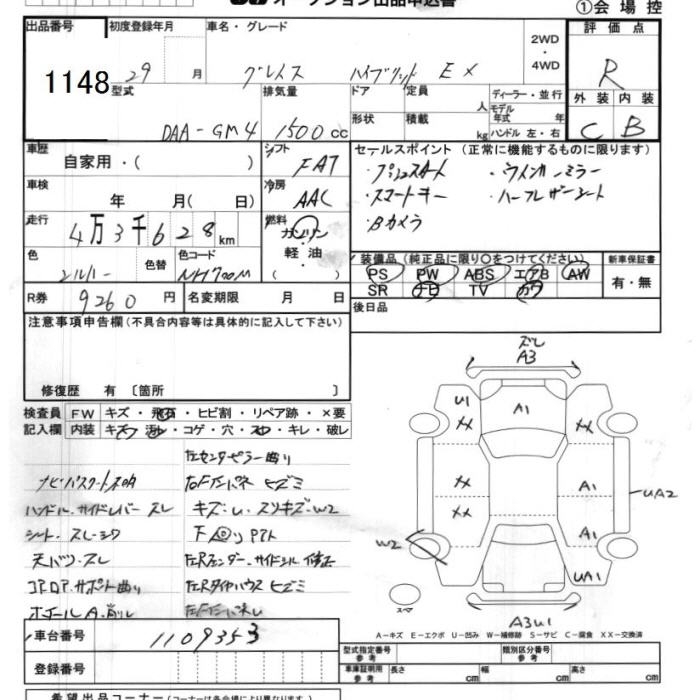 オークション出品申込書
①会場控
出品番号 初度登録年月 車名・グレード 2WD・4WD 評価点
1148 29 月 グレイス ハイブリッド EX R
型式 排気量 ドア 定員 人 ディーラー・並行 外装 内装
モデル年式 年
DAA-GM4 1500cc 形状 積載 kg ハンドル 左・右 C B
車歴 シフト セールスポイント (正常に機能するものに限ります)
自家用・( ) FAT ・プッシュスタート ・ウインカーミラー
車検 冷房 ・スマートキー ・ハーフレザーシート
年 月( 日) AAC ・Bカメラ
走行 燃料
4万3千628km ガソリン・軽油( )
色 色替 色コード 装備品 (純正品に限り〇をつけてください) 新車保証書
シルバー NH700M PS PW ABS エアB AW 有・無
R券 9260円 名変期限 月 日 SR ナビ TV カワ
後日品
注意事項申告欄 (不具合内容等は具体的に記入して下さい)
修復歴 有 〔箇所 〕
検査員記入欄 FW キズ・飛石・ヒビ割・リペア跡・×要
内装 キズ・汚・コゲ・穴・スレ・キレ・破レ
左センターピラー曲り
ハンドル、サイドレバースレ キズ・U・スリキズ・W2
シート、スレ・シワ
天バリ・スレ
コアロア、サポート曲り 左Rタイヤハウスヒズミ
車台番号 1109353
登録番号
ズレ
A3
U1 A1 XX
XX
XX A1
XX UA2
W2 A1
UA1
スマ
A3U1
A―キズ E―エクボ U―凹み W―補修跡 S―サビ C―腐食 XX―交換済
型式指定番号 参考 類別区分番号 参考
車庫証明用 参考 長さ cm 幅 cm 高さ cm
希望出品コーナー